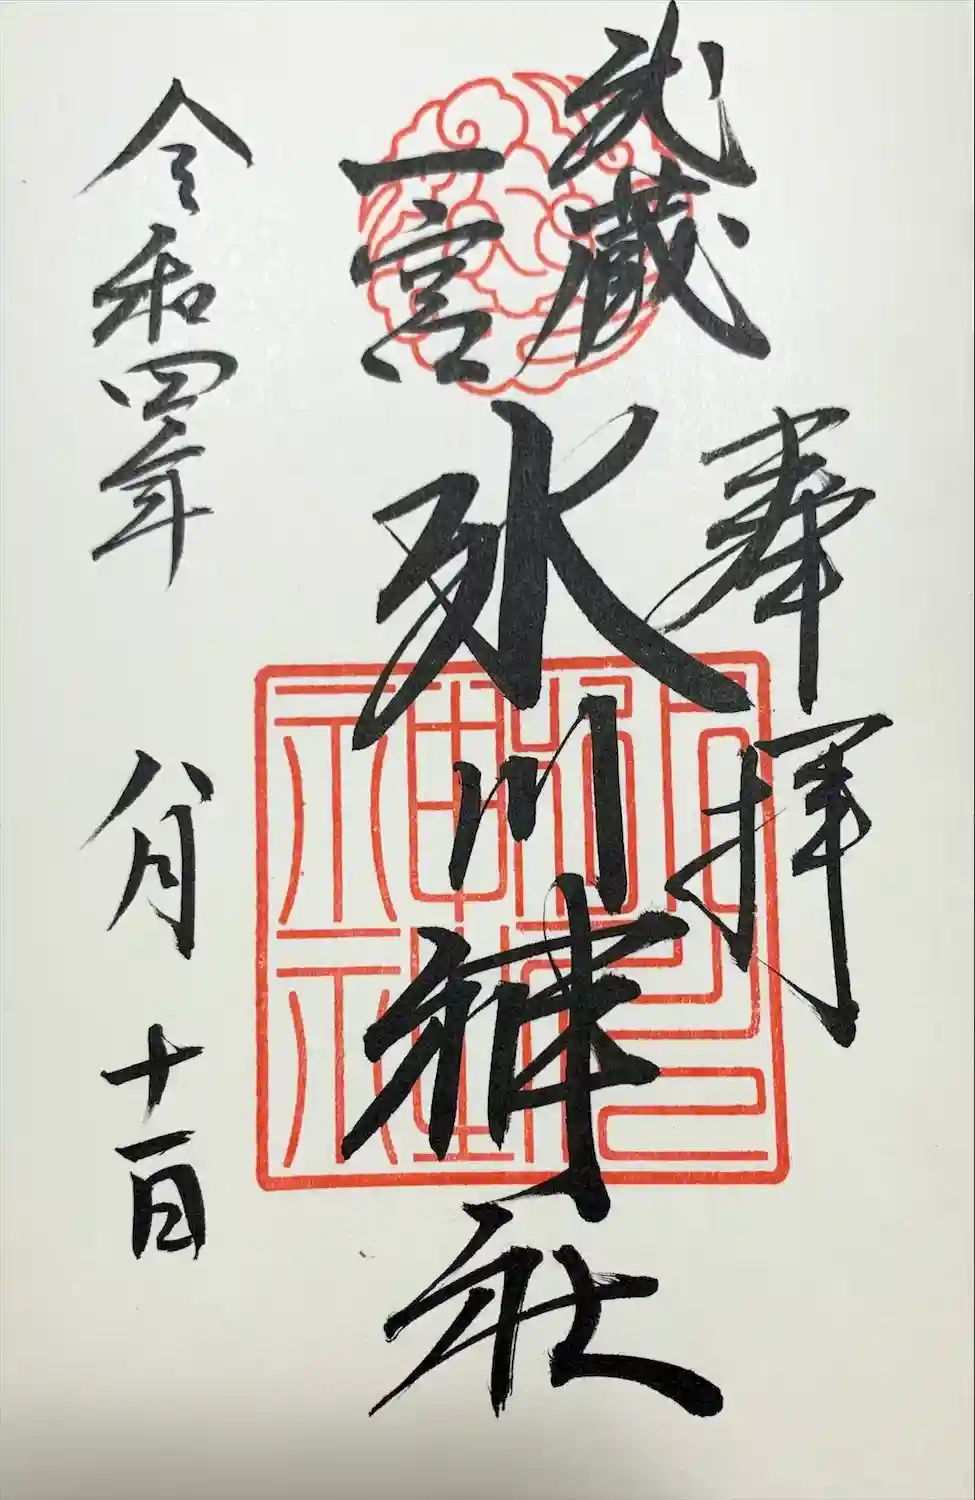 奉拝
武蔵
一宮
氷川神社
令和四年八月十一日